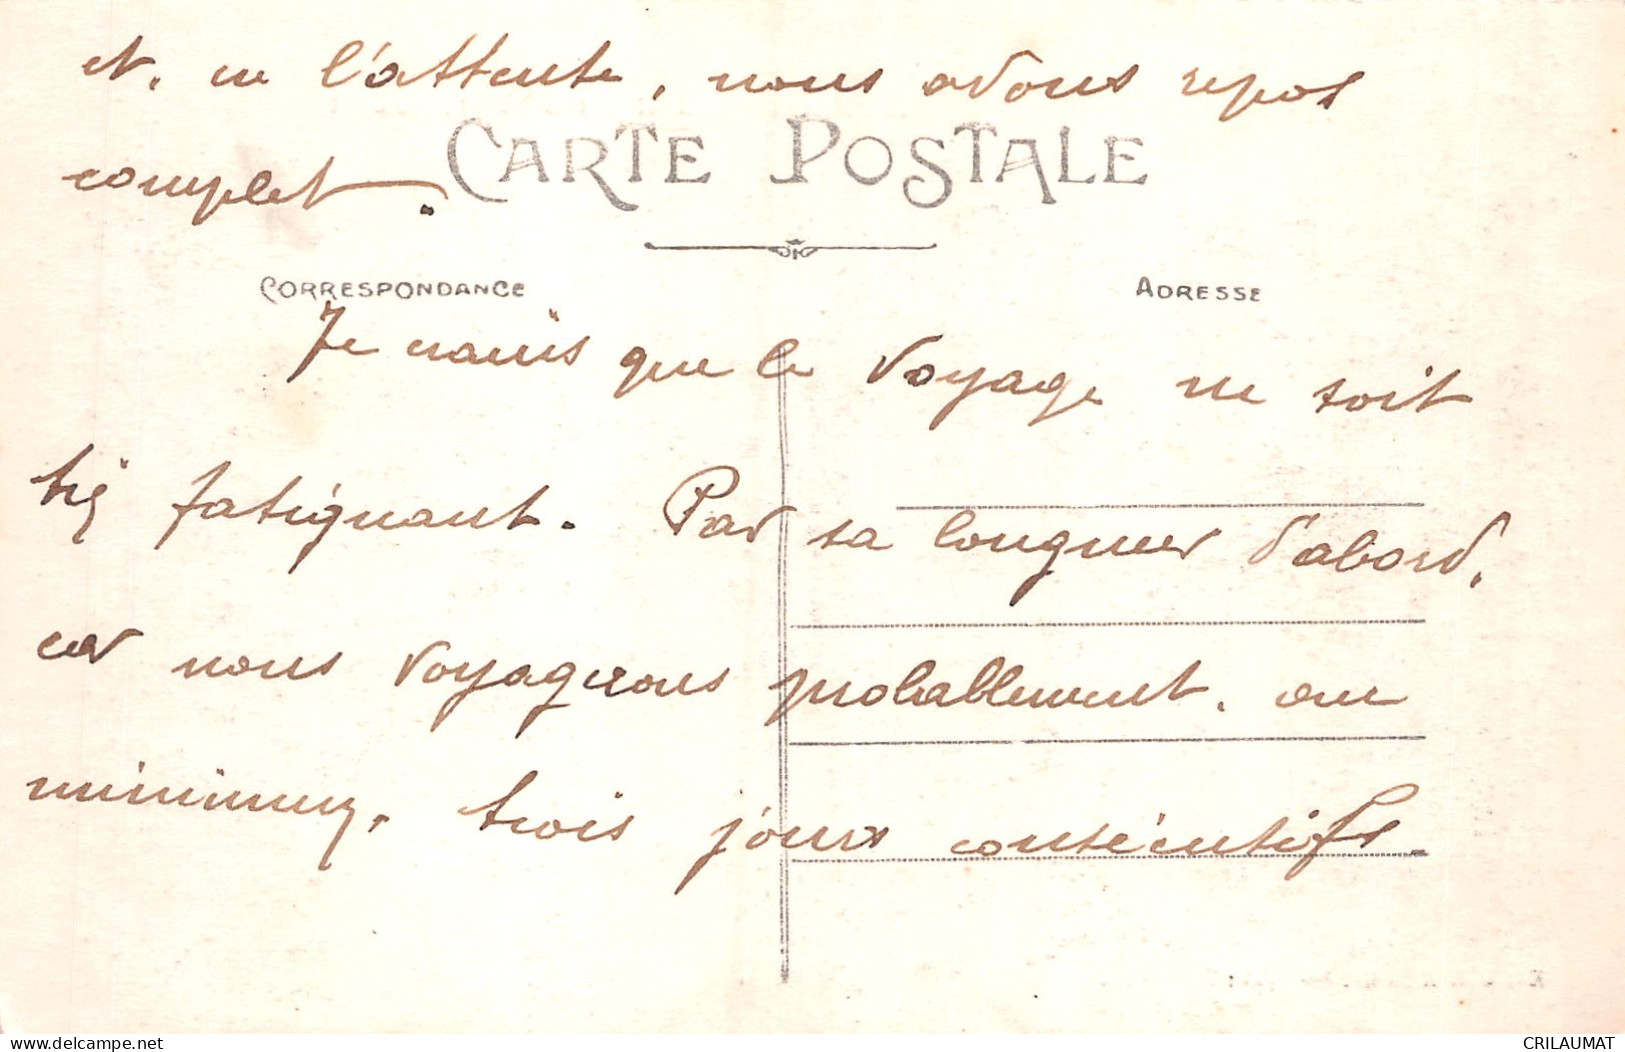 et, en l'attente, nous avons repos
CARTE POSTALE
complet.
CORRESPONDANCE
ADRESSE
Je crains que le voyage ne soit
très fatiguant. Par sa longueur d'abord,
car nous voyagerons probablement, au
minimum, trois jours consécutifs.
delcampe.net
CRILAUMAT